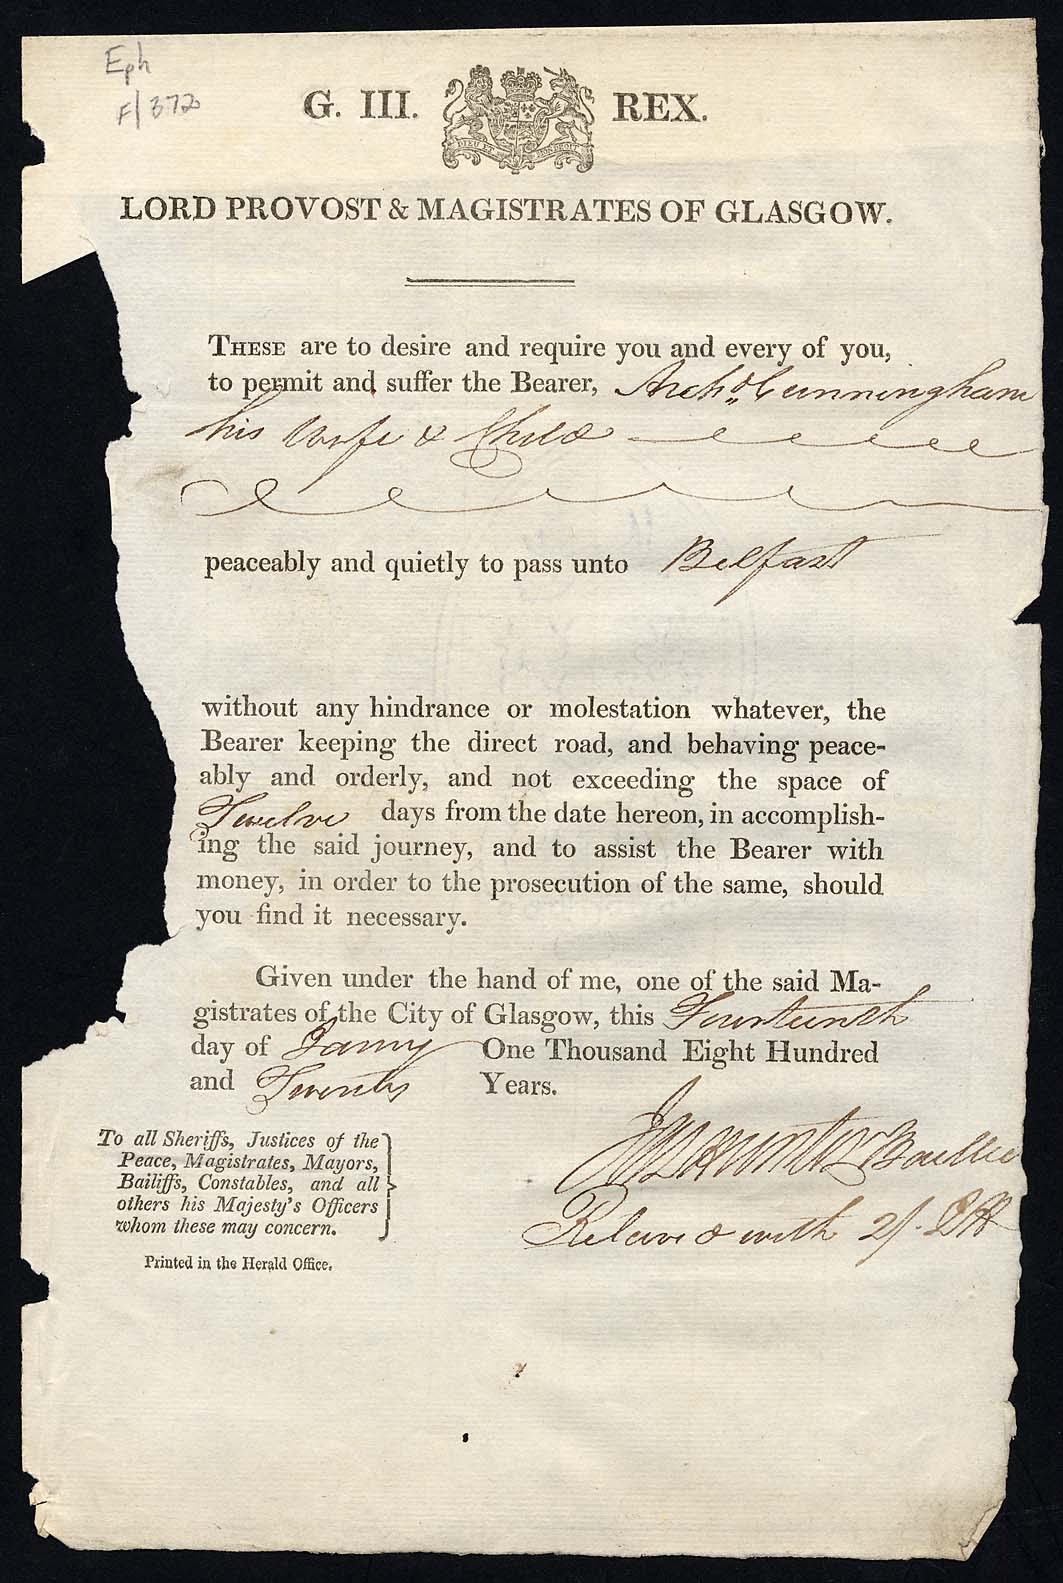 Eph
F/372
G. III. REX.
DIEU ET MON DROIT
LORD PROVOST & MAGISTRATES OF GLASGOW.
THESE are to desire and require you and every of you,
to permit and suffer the Bearer, Archd Cunningham
his Wife & Child
peaceably and quietly to pass unto Belfast
without any hindrance or molestation whatever, the
Bearer keeping the direct road, and behaving peace-
ably and orderly, and not exceeding the space of
Twelve days from the date hereon, in accomplish-
ing the said journey, and to assist the Bearer with
money, in order to the prosecution of the same, should
you find it necessary.
Given under the hand of me, one of the said Ma-
gistrates of the City of Glasgow, this Fourteenth
day of Janry One Thousand Eight Hundred
and Twenty Years.
To all Sheriffs, Justices of the
Peace, Magistrates, Mayors,
Bailiffs, Constables, and all
others his Majesty's Officers
whom these may concern.
Printed in the Herald Office.
Hunter Baillie
Relieved with 2/.